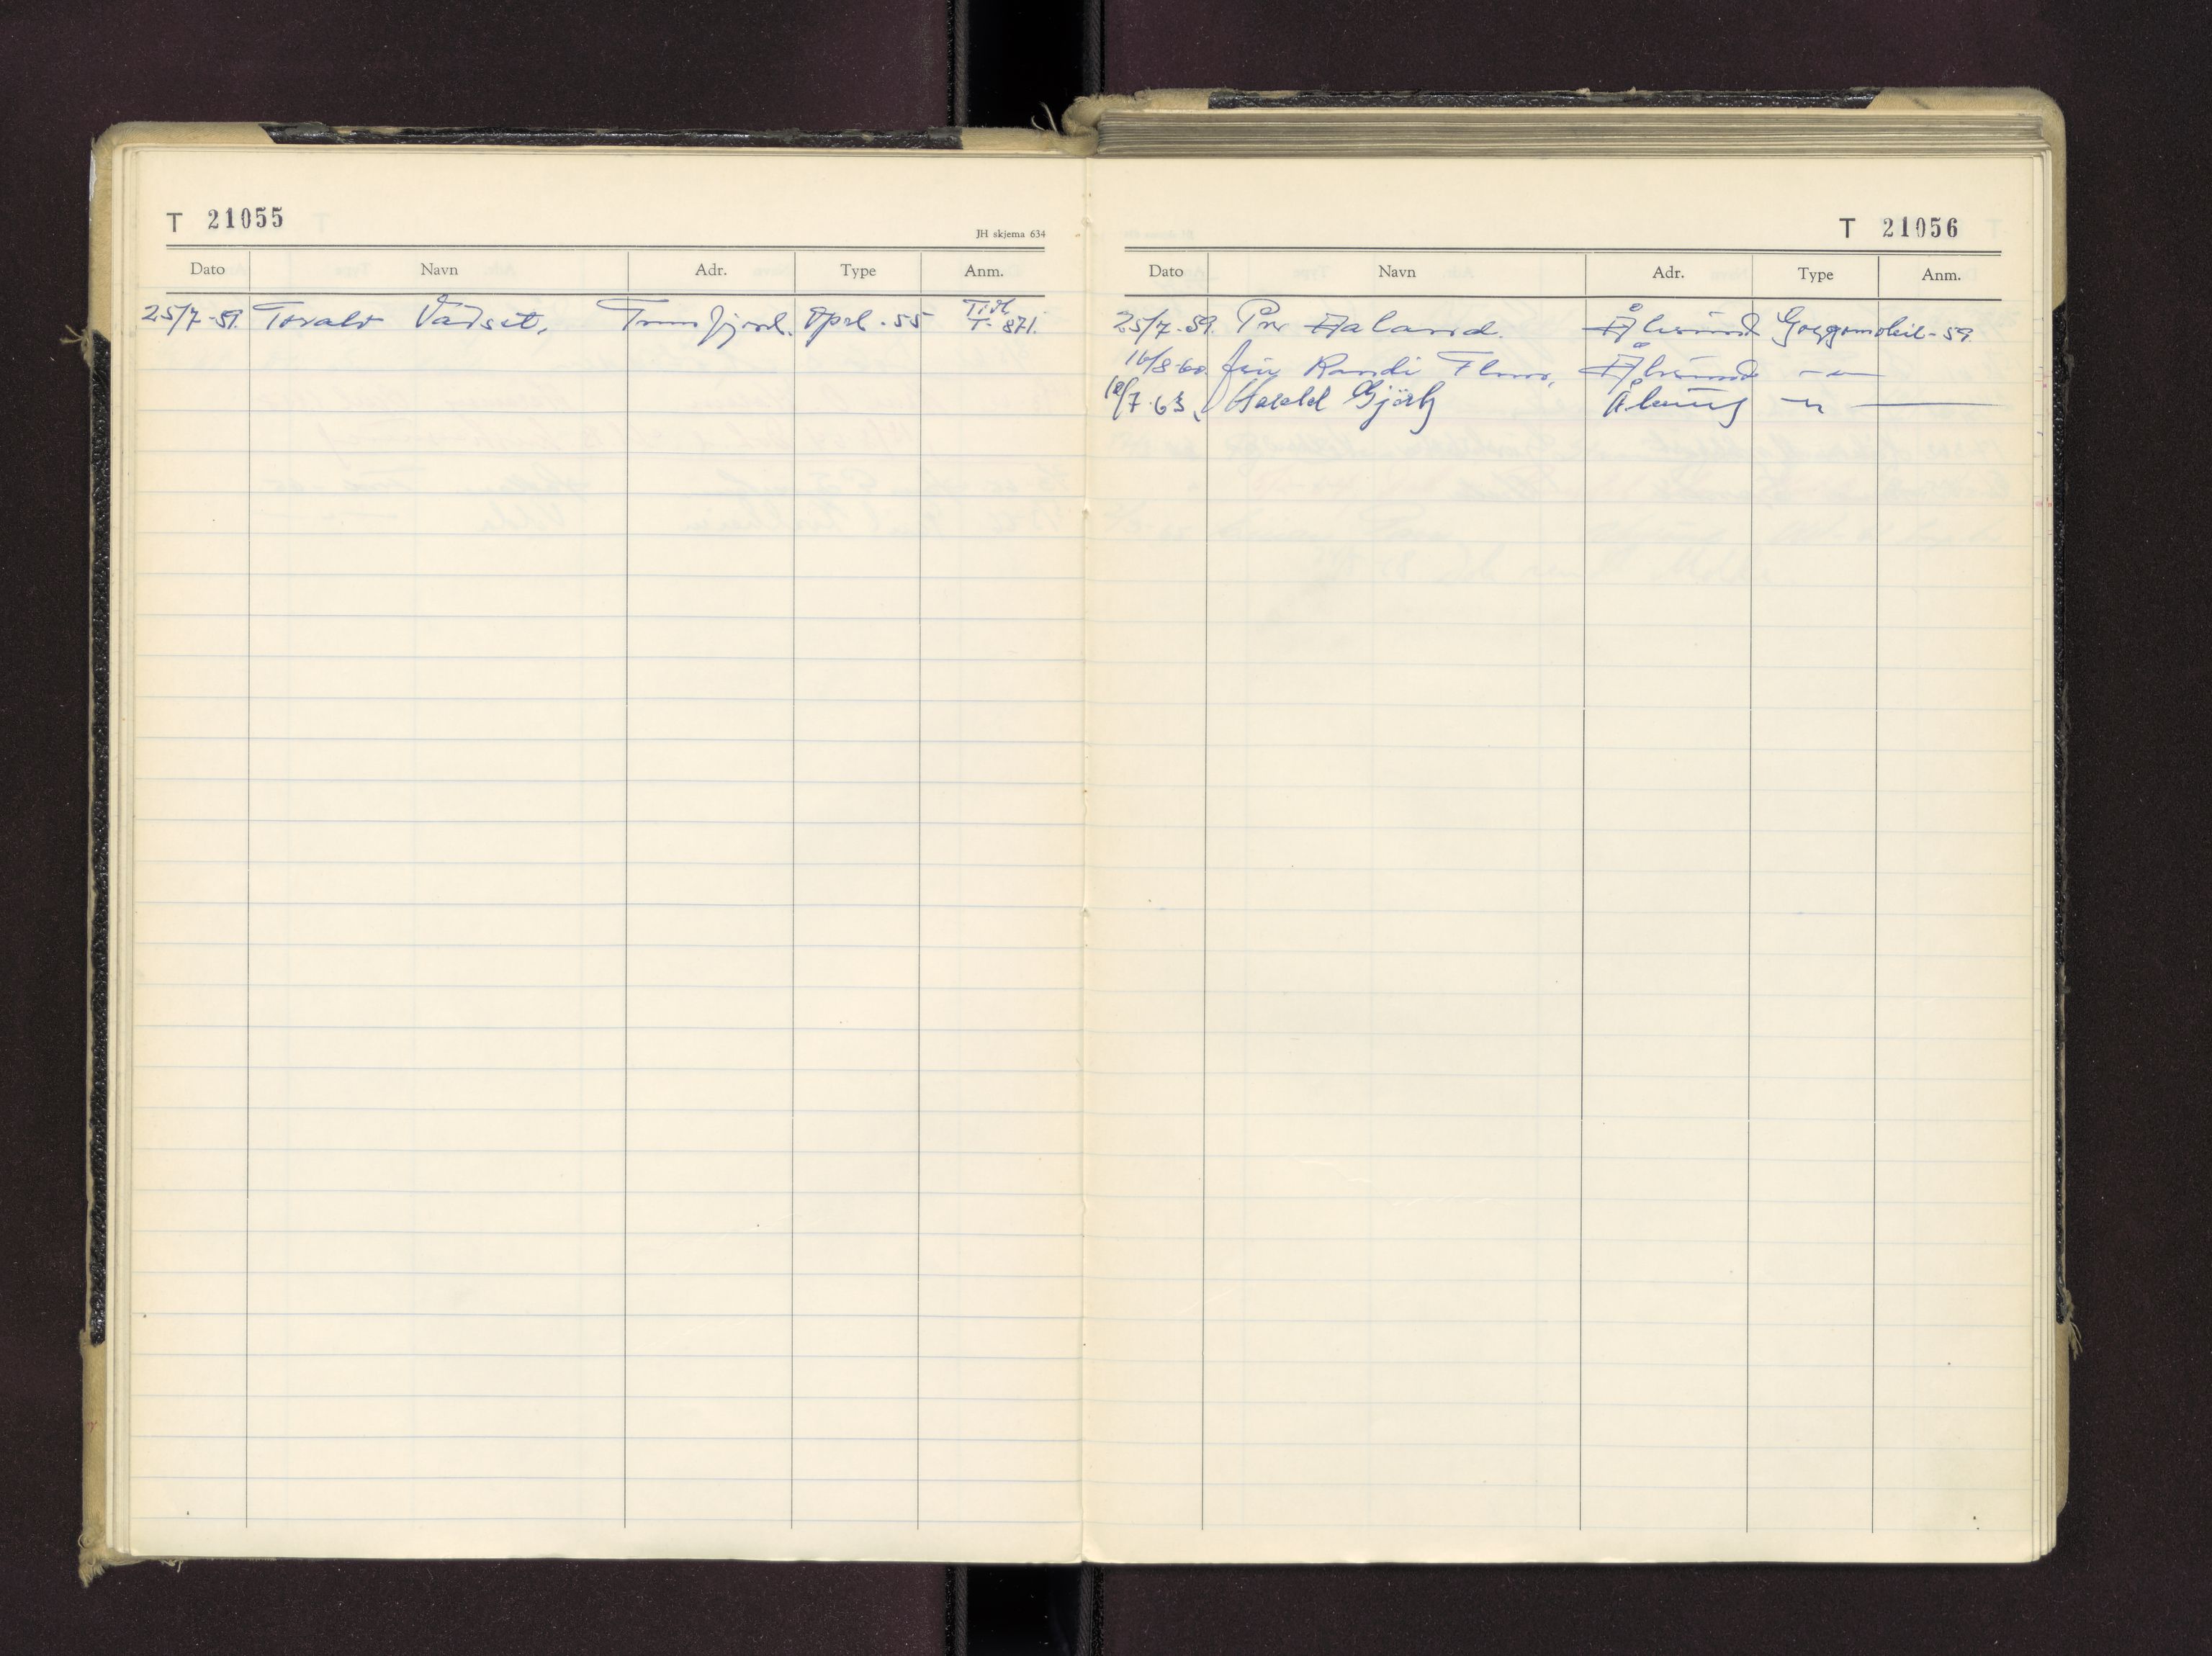 T 21055
JH skjema 634
Dato Navn Adr. Type Anm.
25/7-59. Torald Vadset, Tomrefjord. Opel. 55 Tidl. T- 871.
T 21056
Dato Navn Adr. Type Anm.
25/7-59. Per Aaland. Ålesund Goggomobil-59.
16/8-60. fru Randi Flem, Ålesund -"-
18/7-63, Harald Gjörtz Ålesund -"-